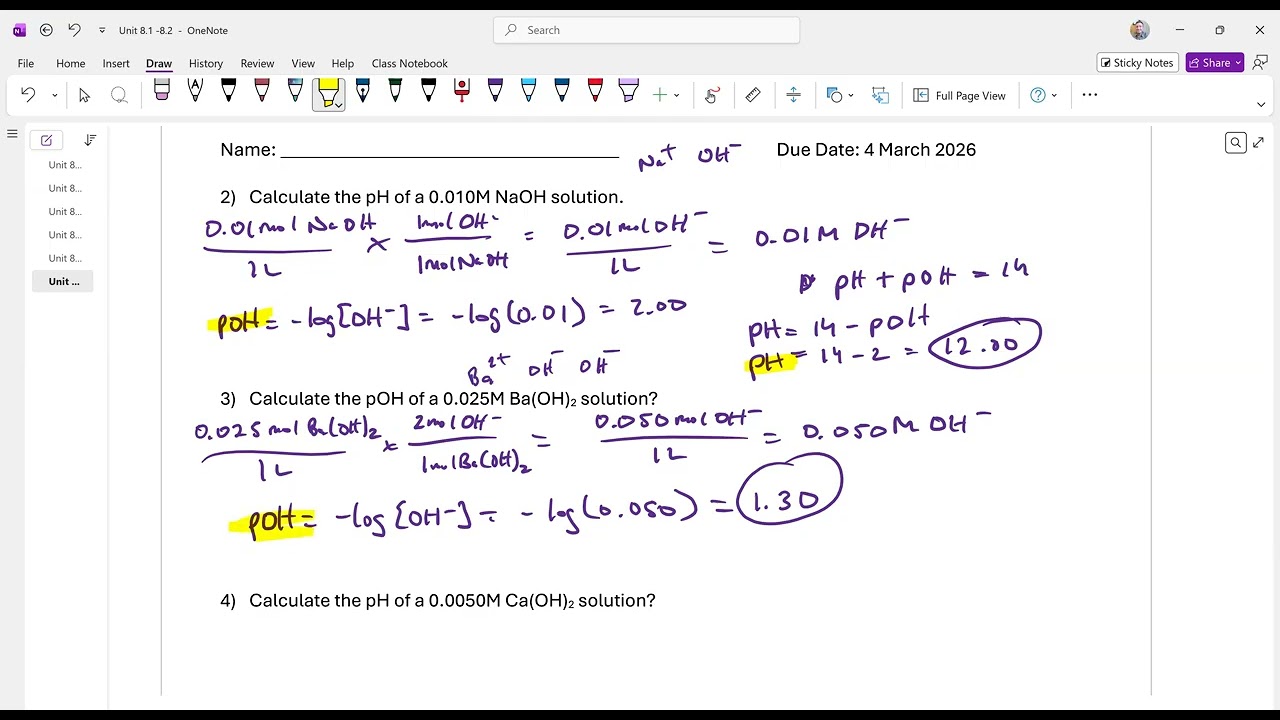 Unit 8.1 -8.2 - OneNote
Search
File Home Insert Draw History Review View Help Class Notebook
Sticky Notes Share
Full Page View
Unit 8...
Unit 8...
Unit 8...
Unit 8...
Unit 8...
Unit ...
Name: ______________ Na⁺ OH⁻ Due Date: 4 March 2026
2) Calculate the pH of a 0.010M NaOH solution.
0.01mol NaOH / 1L × 1mol OH⁻ / 1mol NaOH = 0.01mol OH⁻ / 1L = 0.01M OH⁻
pH + pOH = 14
pOH = -log[OH⁻] = -log(0.01) = 2.00
pH = 14 - pOH
pH = 14 - 2 = 12.00
Ba²⁺ OH⁻ OH⁻
3) Calculate the pOH of a 0.025M Ba(OH)₂ solution?
0.025mol Ba(OH)₂ / 1L × 2mol OH⁻ / 1mol Ba(OH)₂ = 0.050mol OH⁻ / 1L = 0.050M OH⁻
pOH = -log[OH⁻] = -log(0.050) = 1.30
4) Calculate the pH of a 0.0050M Ca(OH)₂ solution?